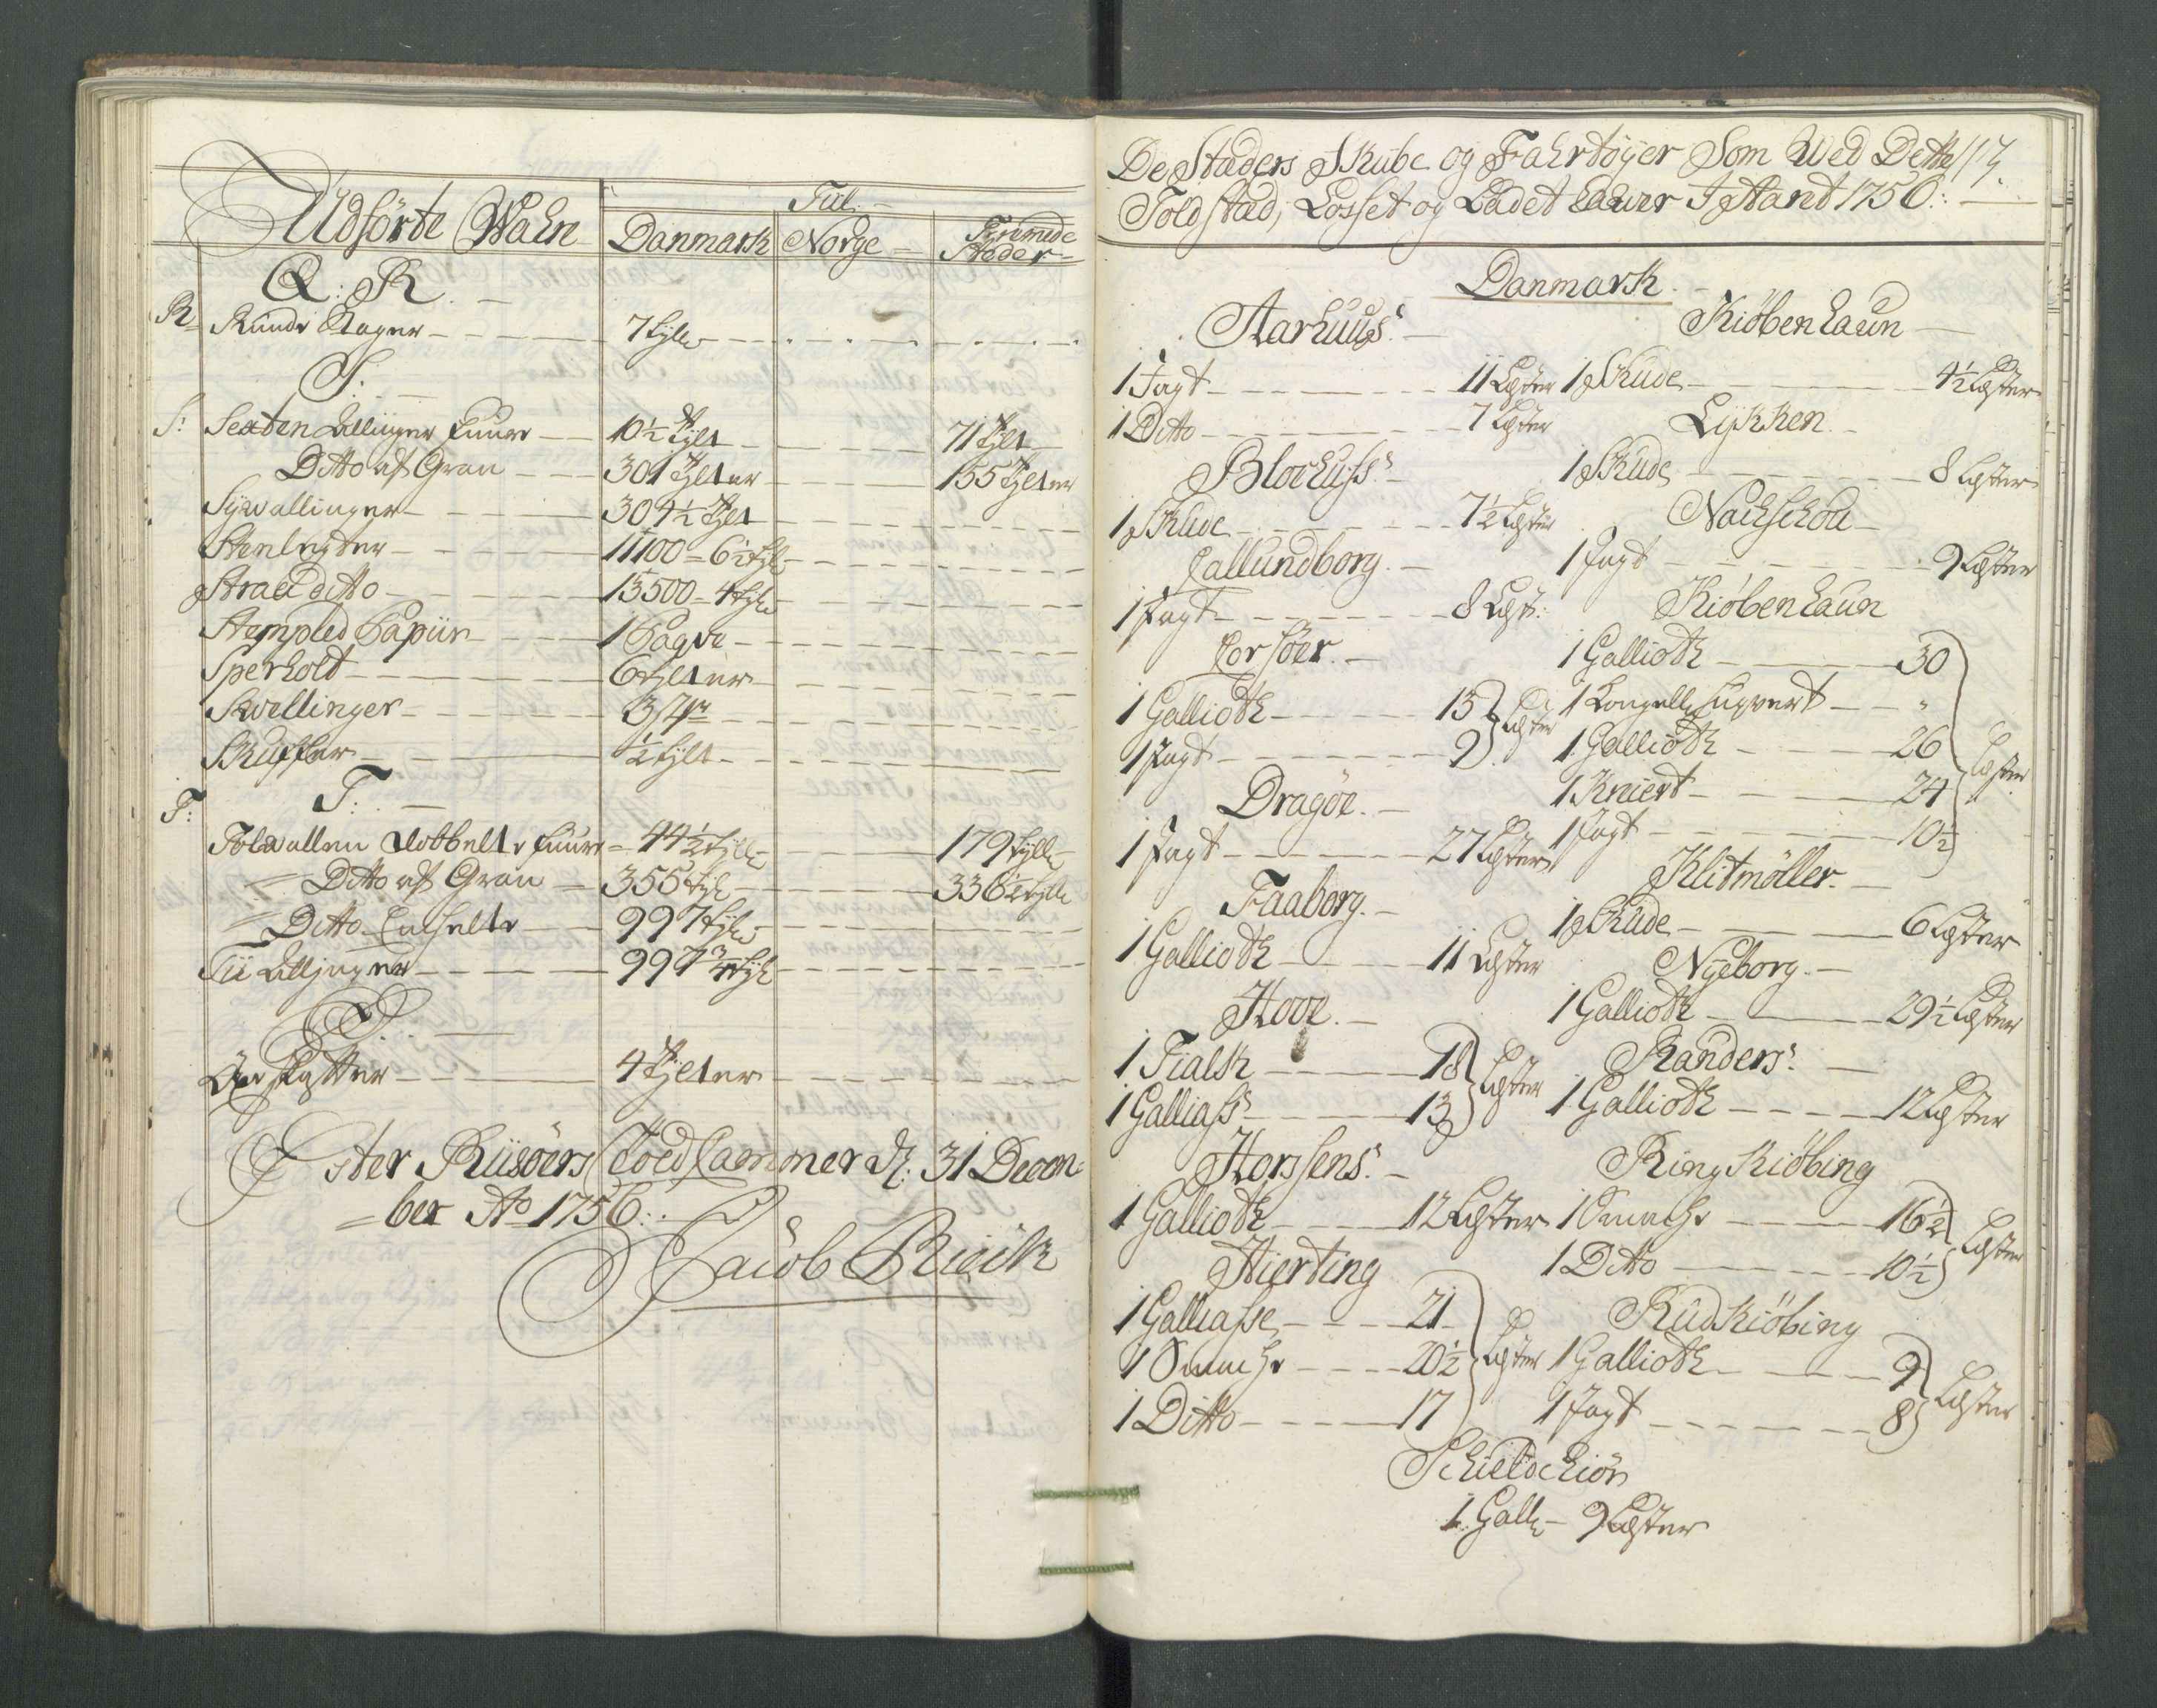 Udførte Wahre
Till
Danmark Norge Fremede Stæder
Q: R.
R Runde Stager 7 tylt
S.
S: Sexten Alllinger Fuure 10½ tylt 71 tylt
Ditto af Gran 301 tylter 155 tylter
Sywallinger 304½ tylt
Stenlegter 11100 = 6½ tylt
Strae ditto 13500 = 4 tylt
Stempled Papiir 1 Pagve
Sperholt 6 tylter
Skvellinger
Skuffer ½ tylt
T:
T: Tolvallen dobbelte fuure 44½ tylt 179 tylt
Ditto af Gran 355 tylt 336½ tylt
Ditto Enchelte 997 tylt
Tii Alljnger 997¾ tylt
4 tylter
Øster Riisöers Toed Cammer d. 31 Decem=
=ber Ao 1756.
Jacob Rieik
De Stæders Skibe og Fahrtöyer Som Wed Dette 117.
Toldstæd, Losset og Ladet haver I Aaret 1756.
Danmark
Aarhuus.
1 Jagt 11 Læster
1 Ditto 7 Læster
Blochuss.
1 Skude 7½ Læster
Callundborg.
1 Jagt 8 Læst:
Corsöer.
1 Gallioth 15
1 Jagt 9 Læster
Dragöe.
1 Jagt 27 Læster
Faaborg.
1 Gallioth 11 Læster
Hove.
1 Tialk 18
1 Galliass 13 Læster
Horssens.
1 Gallioth 12 Læster
Hierting
1 Galliasse 21
1 Smache 20½ Læster
1 Ditto 17
Kiöbenhaun
1 Skude 4½ Læster
Lykken.
1 Skude 8 Læster
Nachschou
1 Jagt 9 Læster
Kiöbenhaun
1 Gallioth 30
1 "
1 Gallioth 26 Læster
1 Kreiert 24
1 Jagt 10½
Klitmöller.
1 Skude 6 Læster
Nyeborg.
1 Gallioth 29½ Læster
Randers.
1 Gallioth 12 Læster
Ringkiöbing
1 Smache 16½
1 Ditto 10½ Læster
Rudkiöbing
1 Gallioth 9
1 Jagt 8 Læster
Schielschiör
1 Gall: 9 Læster